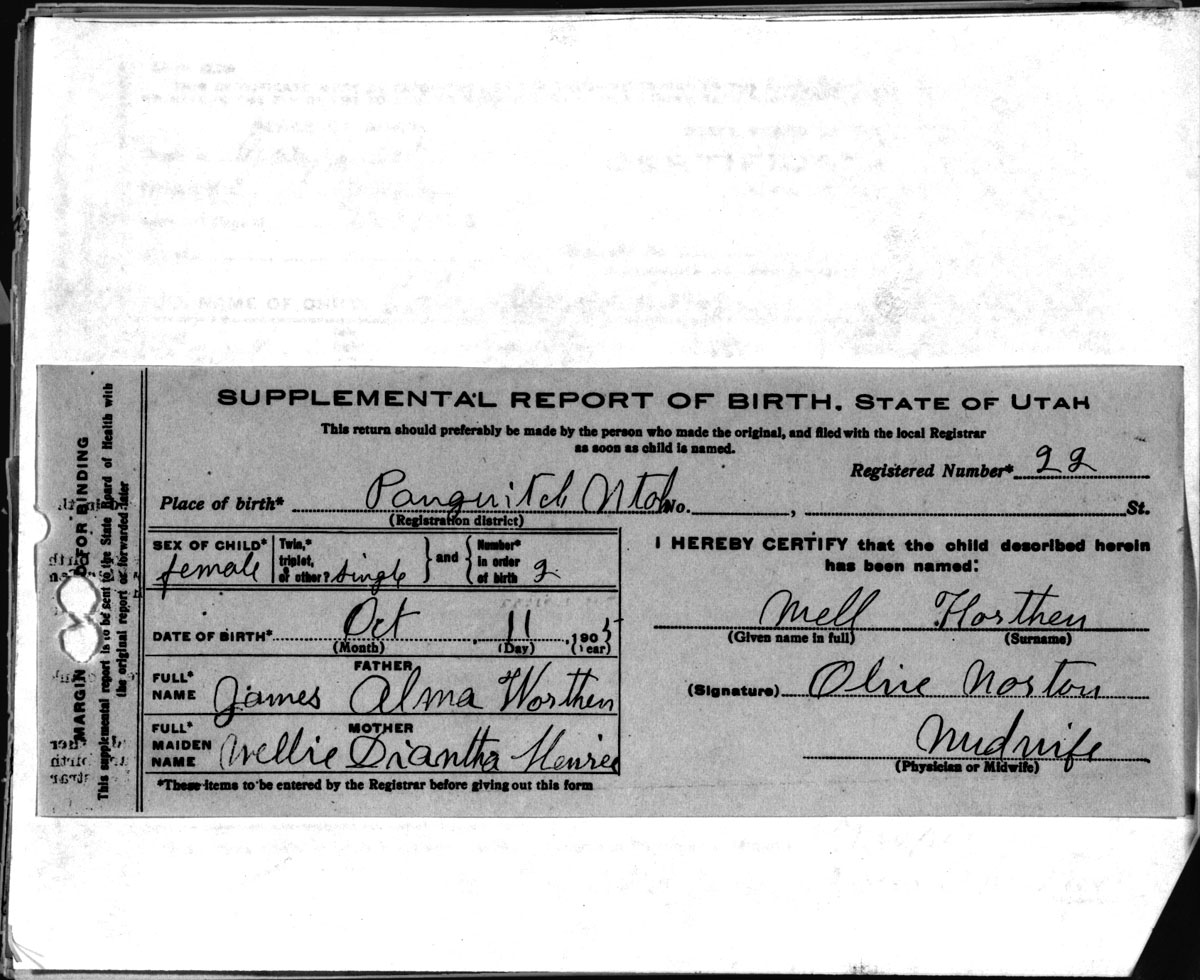 SUPPLEMENTAL REPORT OF BIRTH. STATE OF UTAH
This return should preferably be made by the person who made the original, and filed with the local Registrar
as soon as child is named.
Registered Number* 22
Place of birth* Panguitch Utah No. , St.
(Registration district)
SEX OF CHILD* female
Twin,* triplet, or other? single
and
Number* in order of birth 2
DATE OF BIRTH* Oct 11, 1905
(Month) (Day) (Year)
FATHER
FULL* NAME James Alma Worthen
MOTHER
FULL* MAIDEN NAME Nellie Diantha Henrie
*These items to be entered by the Registrar before giving out this form
I HEREBY CERTIFY that the child described herein
has been named:
Mell Horthen
(Given name in full) (Surname)
(Signature) Olive Norton
Midwife
(Physician or Midwife)
MARGIN FOR BINDING
This supplemental report is to be sent to the State Board of Health with
the original report or forwarded later
FULL NAME OF CHILD